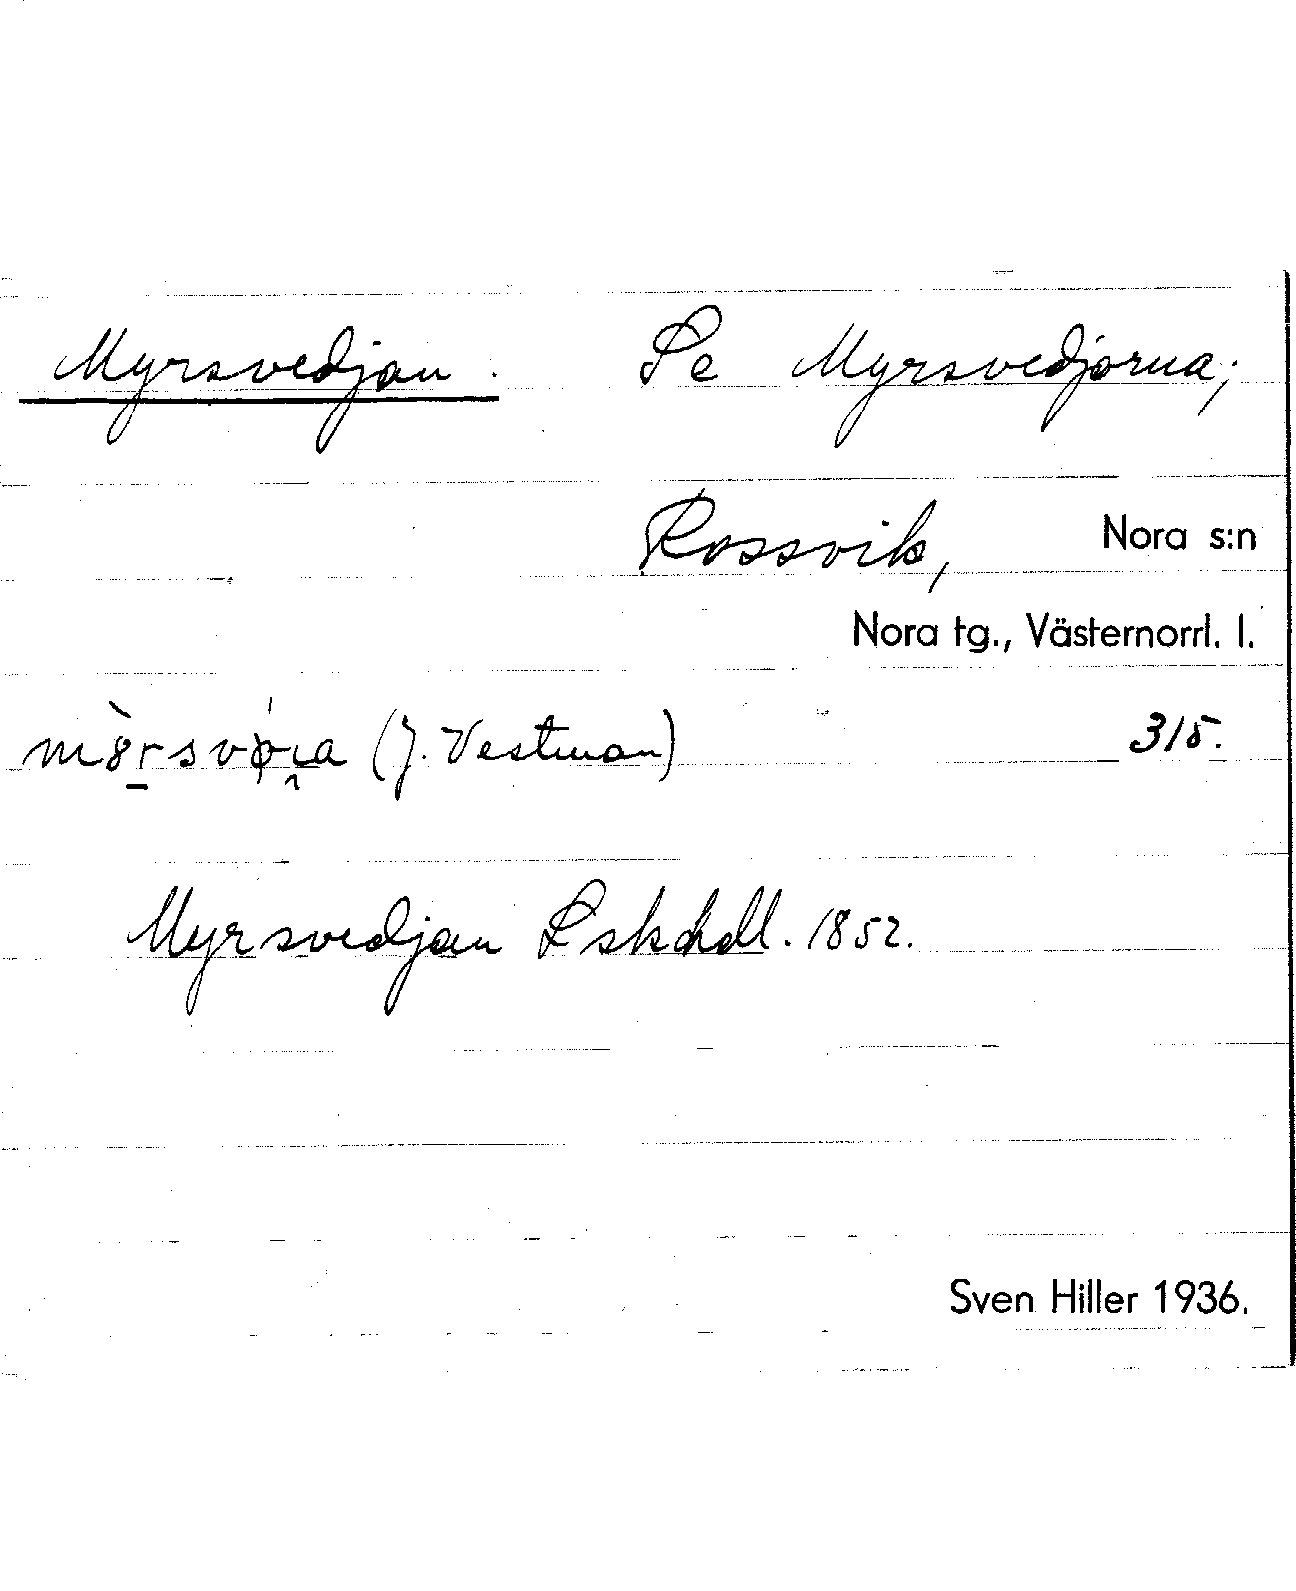 Myrsvedjan. Se Myrsvedjorna;
Rossvik, Nora s:n
Nora tg., Västernorrl. l.
(J. Vestman) 315.
Myrsvedjan Lskhdl. 1852.
Sven Hiller 1936.